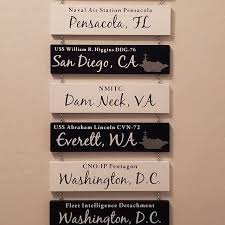 Naval Air Station Pensacola
Pensacola, FL
USS William R. Higgins DDG-76
San Diego, CA
NMITC
Dam Neck, VA
USS Abraham Lincoln CVN-72
Everett, WA
CNO-IP Pentagon
Washington, D.C.
Fleet Intelligence Detachment
Washington, D.C.